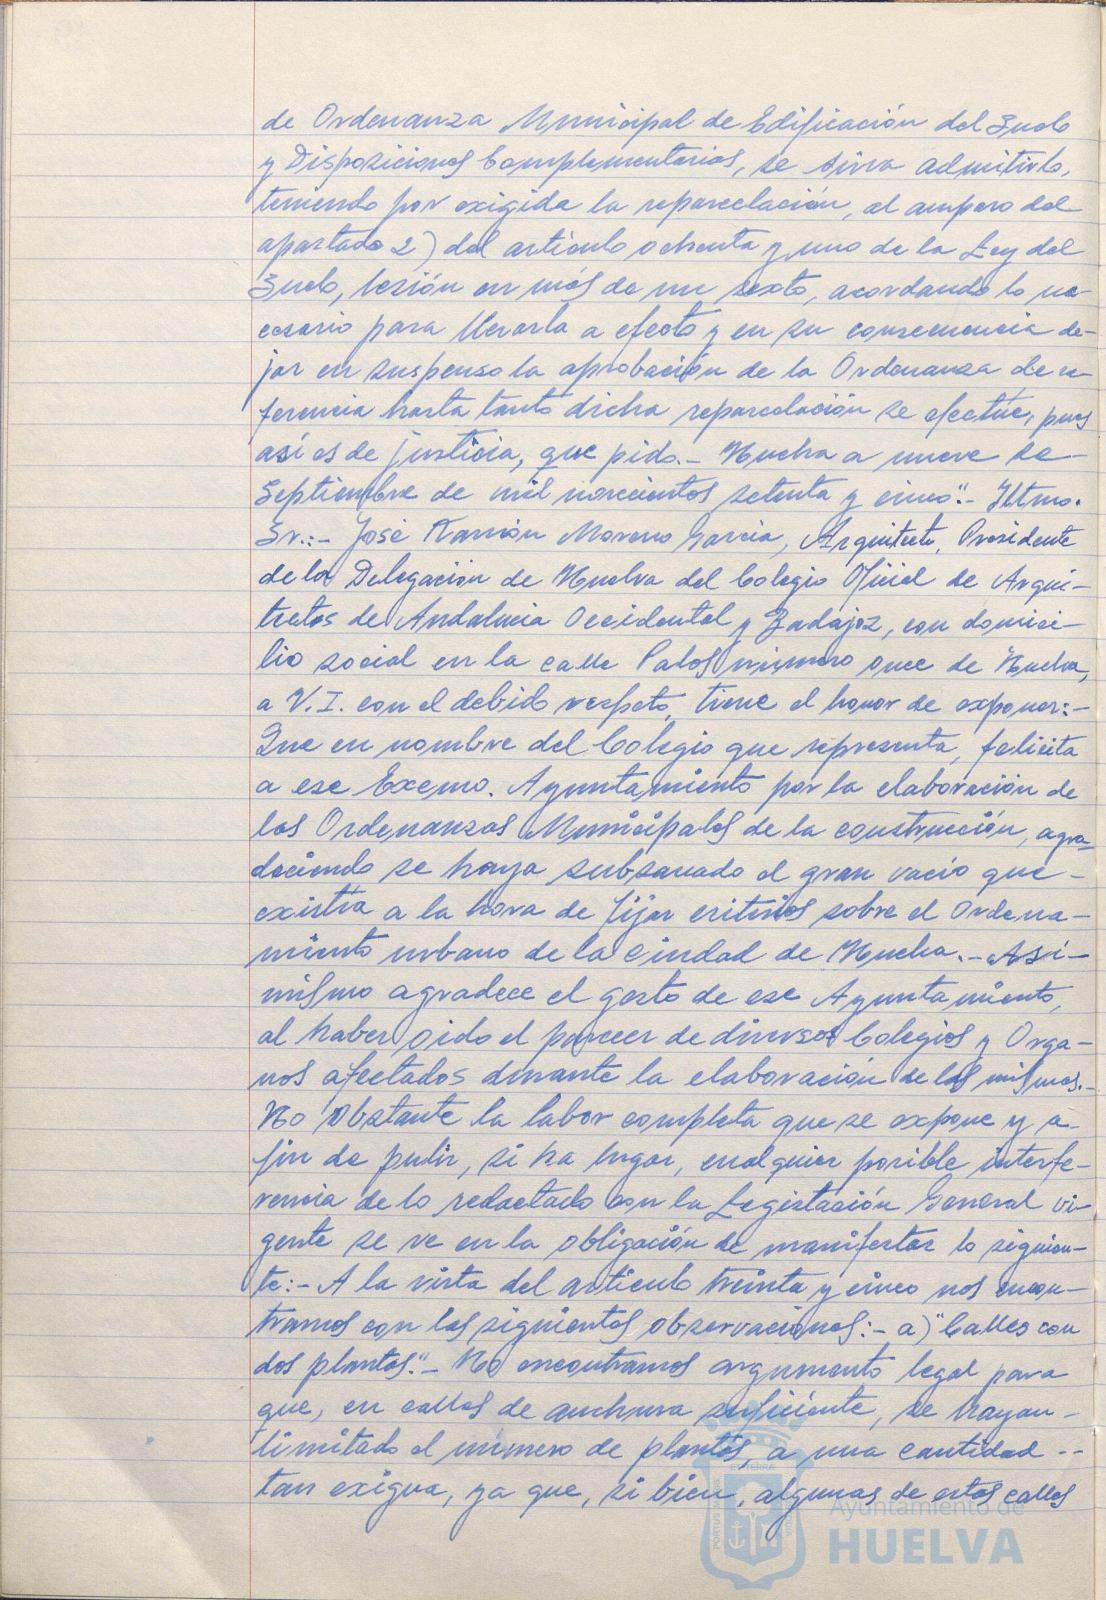 de Ordenanza Municipal de Edificación del Suelo
y Disposiciones Complementarias, se sirva admitirlo,
teniendo por exigida la reparcelación, al amparo del
apartado 2) del artículo ochenta y uno de la Ley del
Suelo, lesión en más de un sexto, acordando lo ne-
cesario para llevarla a efecto y en su consecuencia de-
jar en suspenso la aprobación de la Ordenanza de re-
ferencia hasta tanto dicha reparcelación se efectúe, pues
así es de justicia, que pido.- Huelva a nueve de
Septiembre de mil novecientos setenta y cinco".- Iltmo.
Sr.:- José Ramón Moreno García, Arquitecto, Presidente
de la Delegación de Huelva del Colegio Oficial de Arqui-
tectos de Andalucía Occidental y Badajoz, con domici-
lio social en la calle Palos número once de Huelva,
a V.I. con el debido respeto, tiene el honor de exponer:-
Que en nombre del Colegio que representa, felicita
a ese Excmo. Ayuntamiento por la elaboración de
las Ordenanzas Municipales de la construcción, agra-
deciendo se haya subsanado el gran vacío que -
existía a la hora de fijar criterios sobre el Ordena-
miento urbano de la Ciudad de Huelva.- Así-
mismo agradece el gesto de ese Ayuntamiento,
al haber oído el parecer de diversos Colegios y Orga-
nos afectados durante la elaboración de las mismas.-
No obstante la labor completa que se expone y a
fin de pulir, si ha lugar, cualquier posible interfe-
rencia de lo redactado con la Legislación General vi-
gente se ve en la obligación de manifestar lo siguien-
te:- A la vista del artículo treinta y cinco nos encon-
tramos con las siguientes observaciones:- a) "Calles con
dos plantas".- No encontramos argumento legal para
que, en calles de anchura suficiente, se hayan -
limitado el número de plantas, a una cantidad --
tan exigua, ya que, si bien, algunas de estas calles
Ayuntamiento de
HUELVA